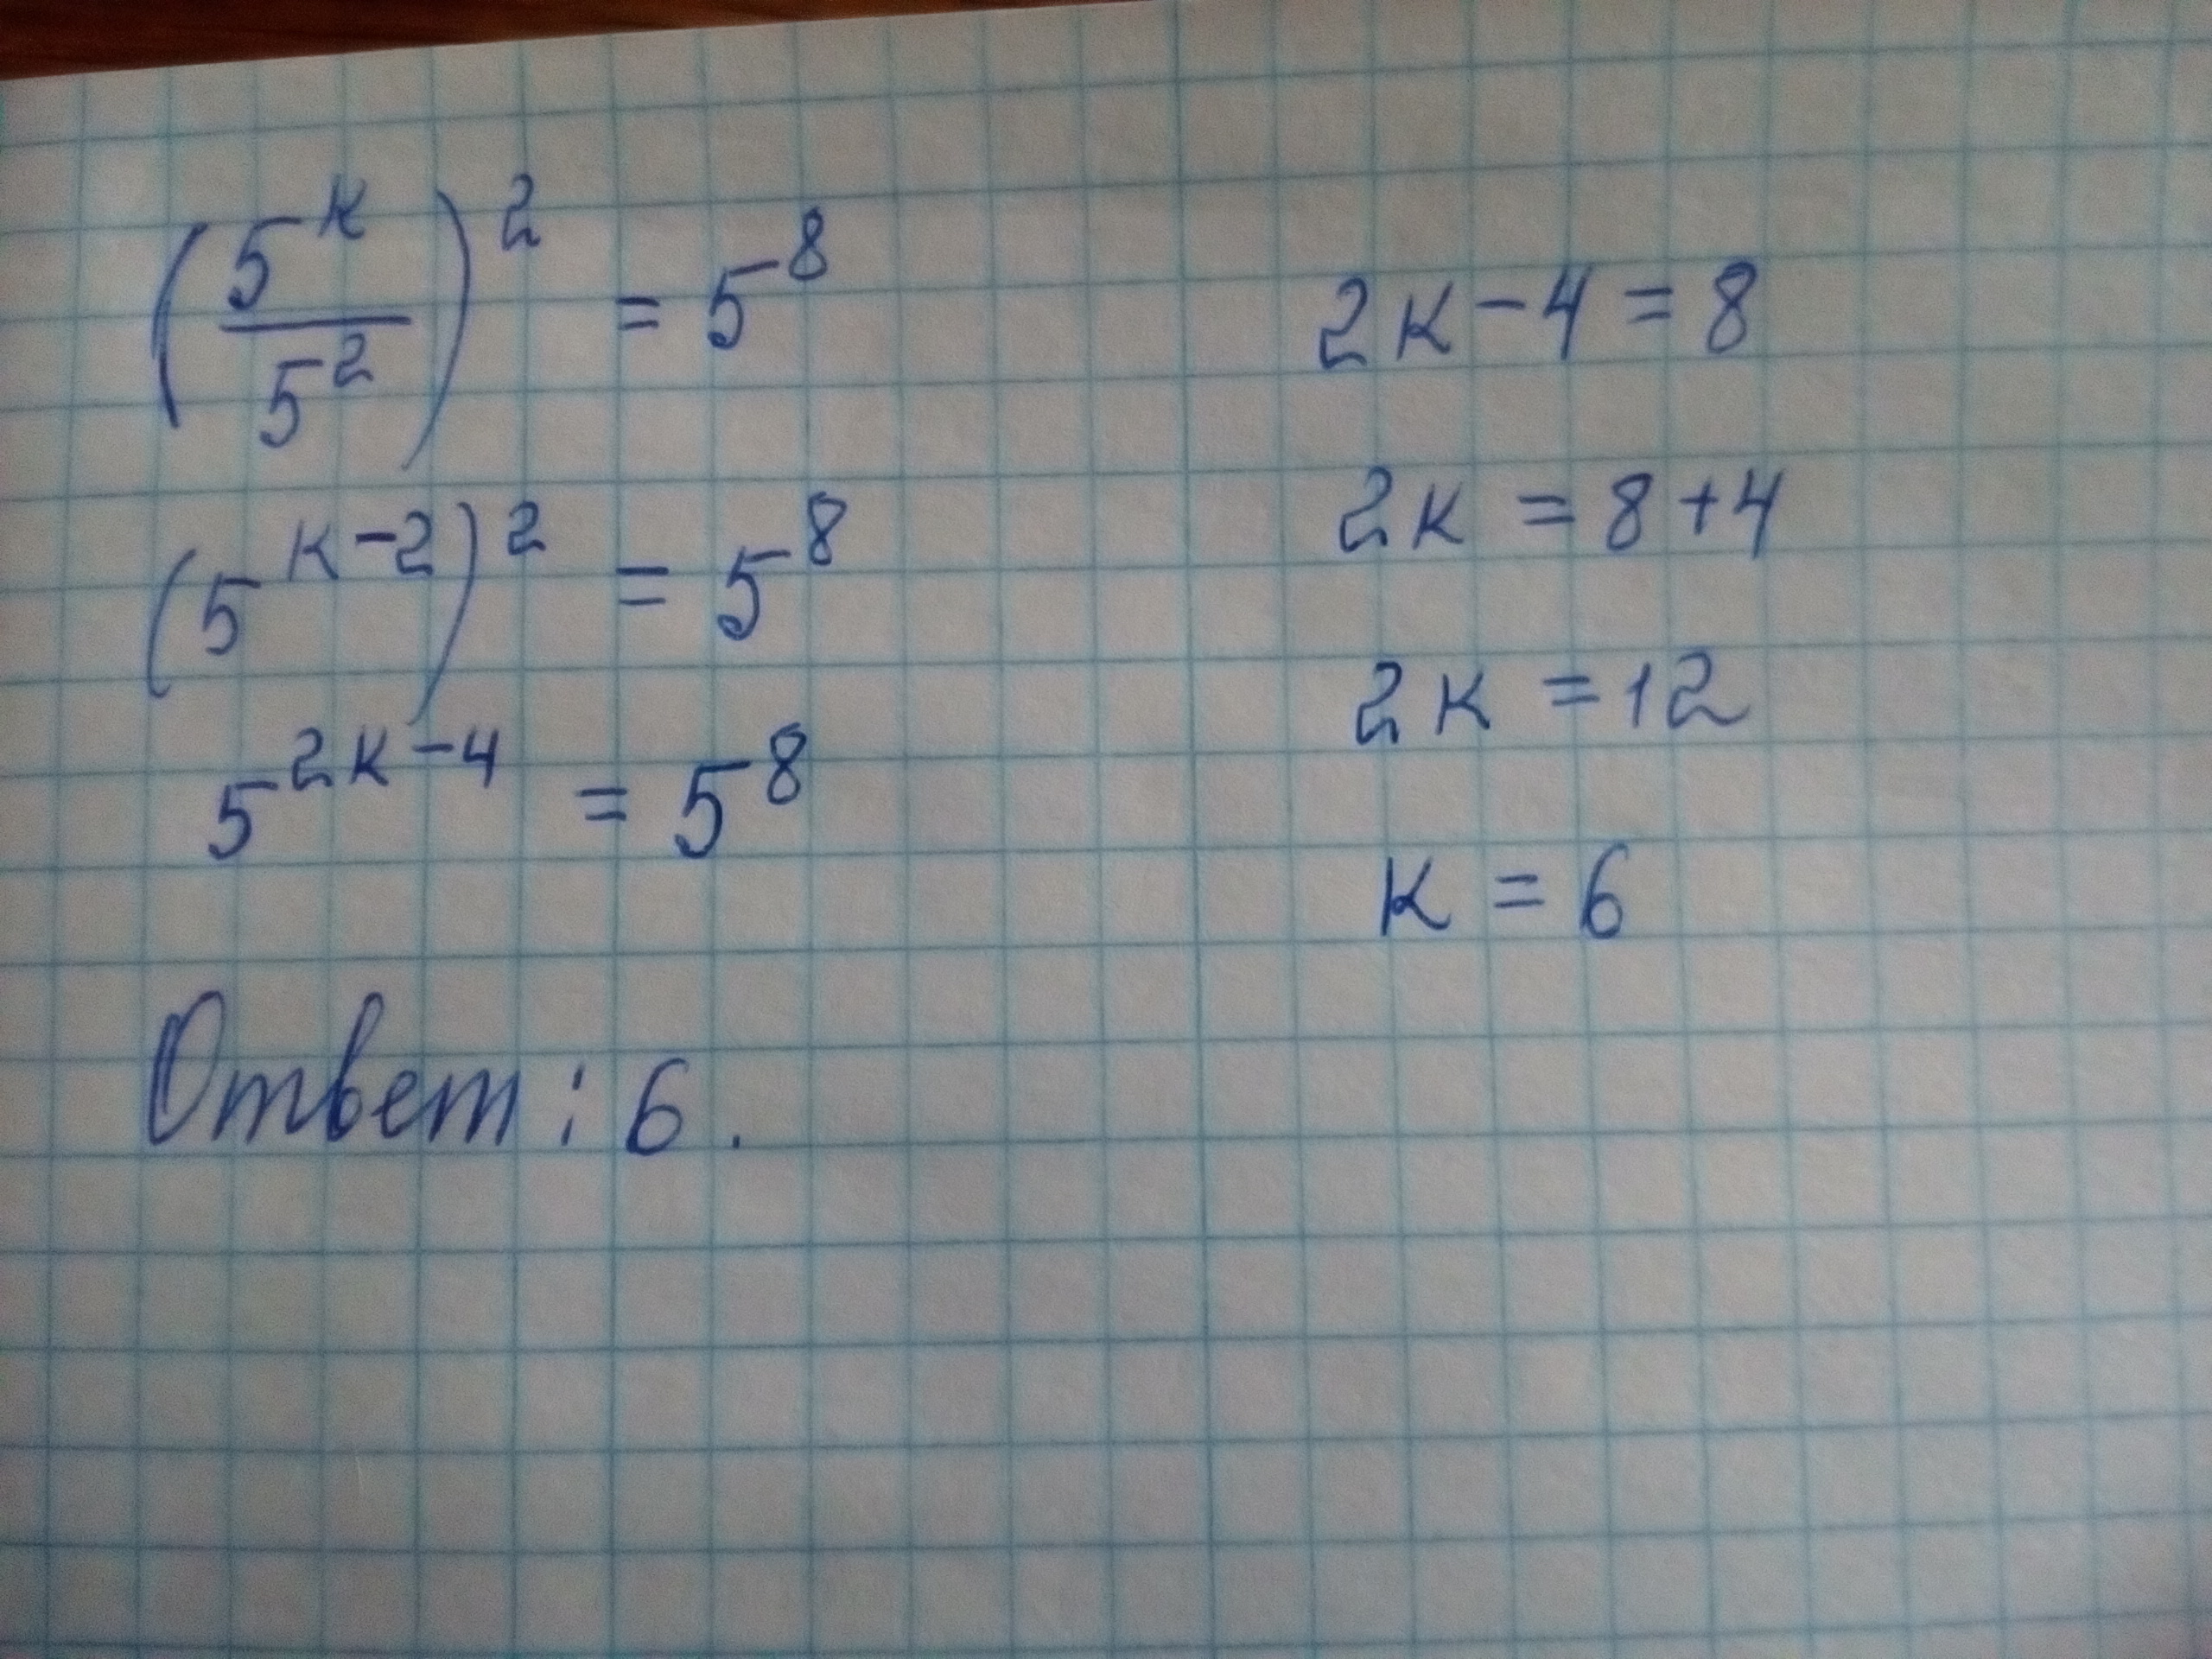 (5^к / 5^2)^2 = 5^8
(5^(к-2))^2 = 5^8
5^(2к-4) = 5^8
2к - 4 = 8
2к = 8 + 4
2к = 12
к = 6
Ответ: 6.